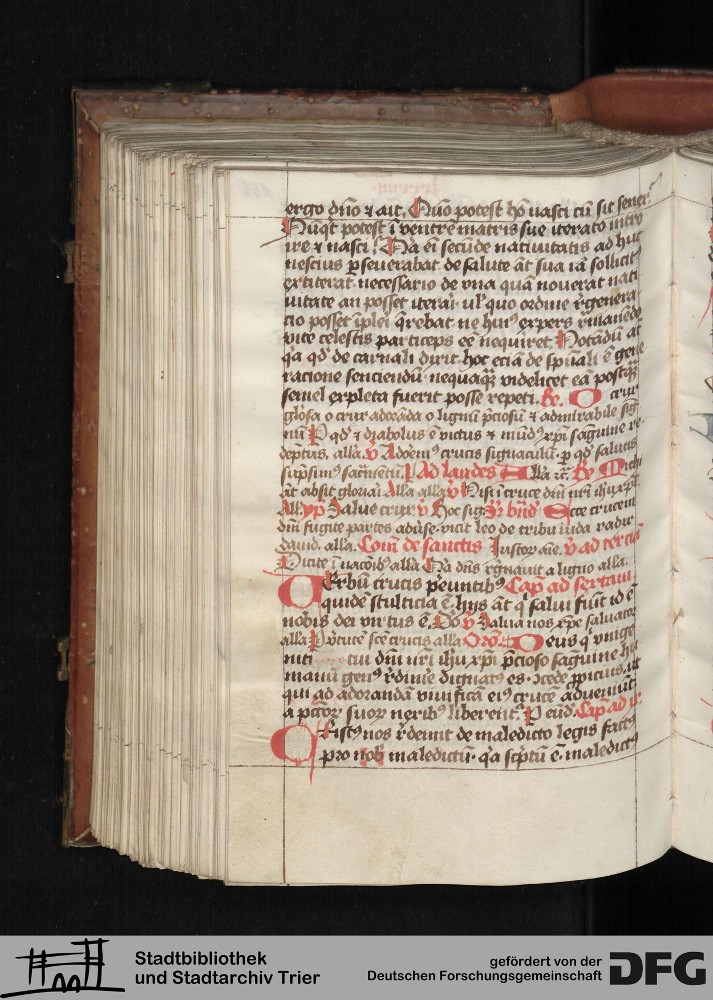 ergo dño ⁊ ait. Quo potest hõ nasci cũ sit senex
Nũqͥt potest ĩ ventrẽ matris sue iterato intro
ire ⁊ nasci Na ei secũde nativitatis ad huc
nescius ꝑseverabat de salute ãt sua iã sollicitꝰ
extiterat necessario de vna quã noverat nati
vitate an posset iterari vl' quo ordine rẽgenera
cio posset ĩpleri q̃rebat ne huiꝰ expers rẽmanẽdo
vite celestis particeps eẽ nequiret Notãdũ at
qͥa qd' de carnali dixit hoc eciã de spũali ẽ gene
racione senciendũ nequaqꝫ videlicet eã postqꝫ
semel expleta fuerit posse repeti. Rx. O crux
glosa o crux adorãda o lignũ p̃ciosũ ⁊ admirabile sig
nũ P qd' ⁊ diabolus ẽ victus ⁊ mũdꝰ xp̃i sanguine re
deptus. alla. v̊ Adorem' crucis signaculũ. p qd' salutis
sũpsimꝰ sac̃metũ. Ad laudes Alla Rx Michi
ãt absit gloriari Alla alla v̊ Nisi ĩ cruce dñi nr̃i ihũ xp̃i.
All. yp̃ Salue crux v̊ Hoc sig. bñd' Ecce crucem
dñi fugite partes adũse. vicit leo de tribu iuda radix
david. alla. Com̃ de sanctis Iustor aĩe. v̊ ad tercia
Dicite ĩ nacõibꝰ alla Na dñs rẽgnauit a ligno alla.
Verbũ crucis p̃euntibꝰ Cap̃ ad sextam
quidẽ stulticia ẽ. hijs ãt q̃ salui fiũt id ẽ
nobis dei virtus ẽ. v̊ Salua nos xp̃e saluator
alla P v̊tutẽ scẽ crucis alla Deus q̃ vnige
niti tui dñi nr̃i ihũ xp̃i p̃cioso sanguine hu
manũ genꝰ rẽdime dignatꝰ es. ɔcede ꝓpicius. ut
qui ad adorandã viuificã eiꝰ crucẽ adueniũt
a pctõr suor nexibꝰ liberent. P eũd Cap̃ ad
Xristꝰ nos rẽdemit de maledicto legis factꝰ
pro nob maledictũ. qͥa scp̃tũ ẽ. maledictꝰ
Stadtbibliothek
und Stadtarchiv Trier
gefördert von der
Deutschen Forschungsgemeinschaft
DFG